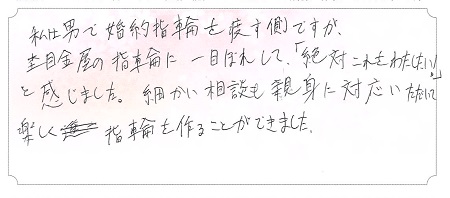 私は男で婚約指輪を渡す側ですが、
杢目金屋の指輪に一目ぼれして、「絶対これをわたしたい!」
と感じました。細かい相談も親身に対応いただいて
楽しく指輪を作ることができました。